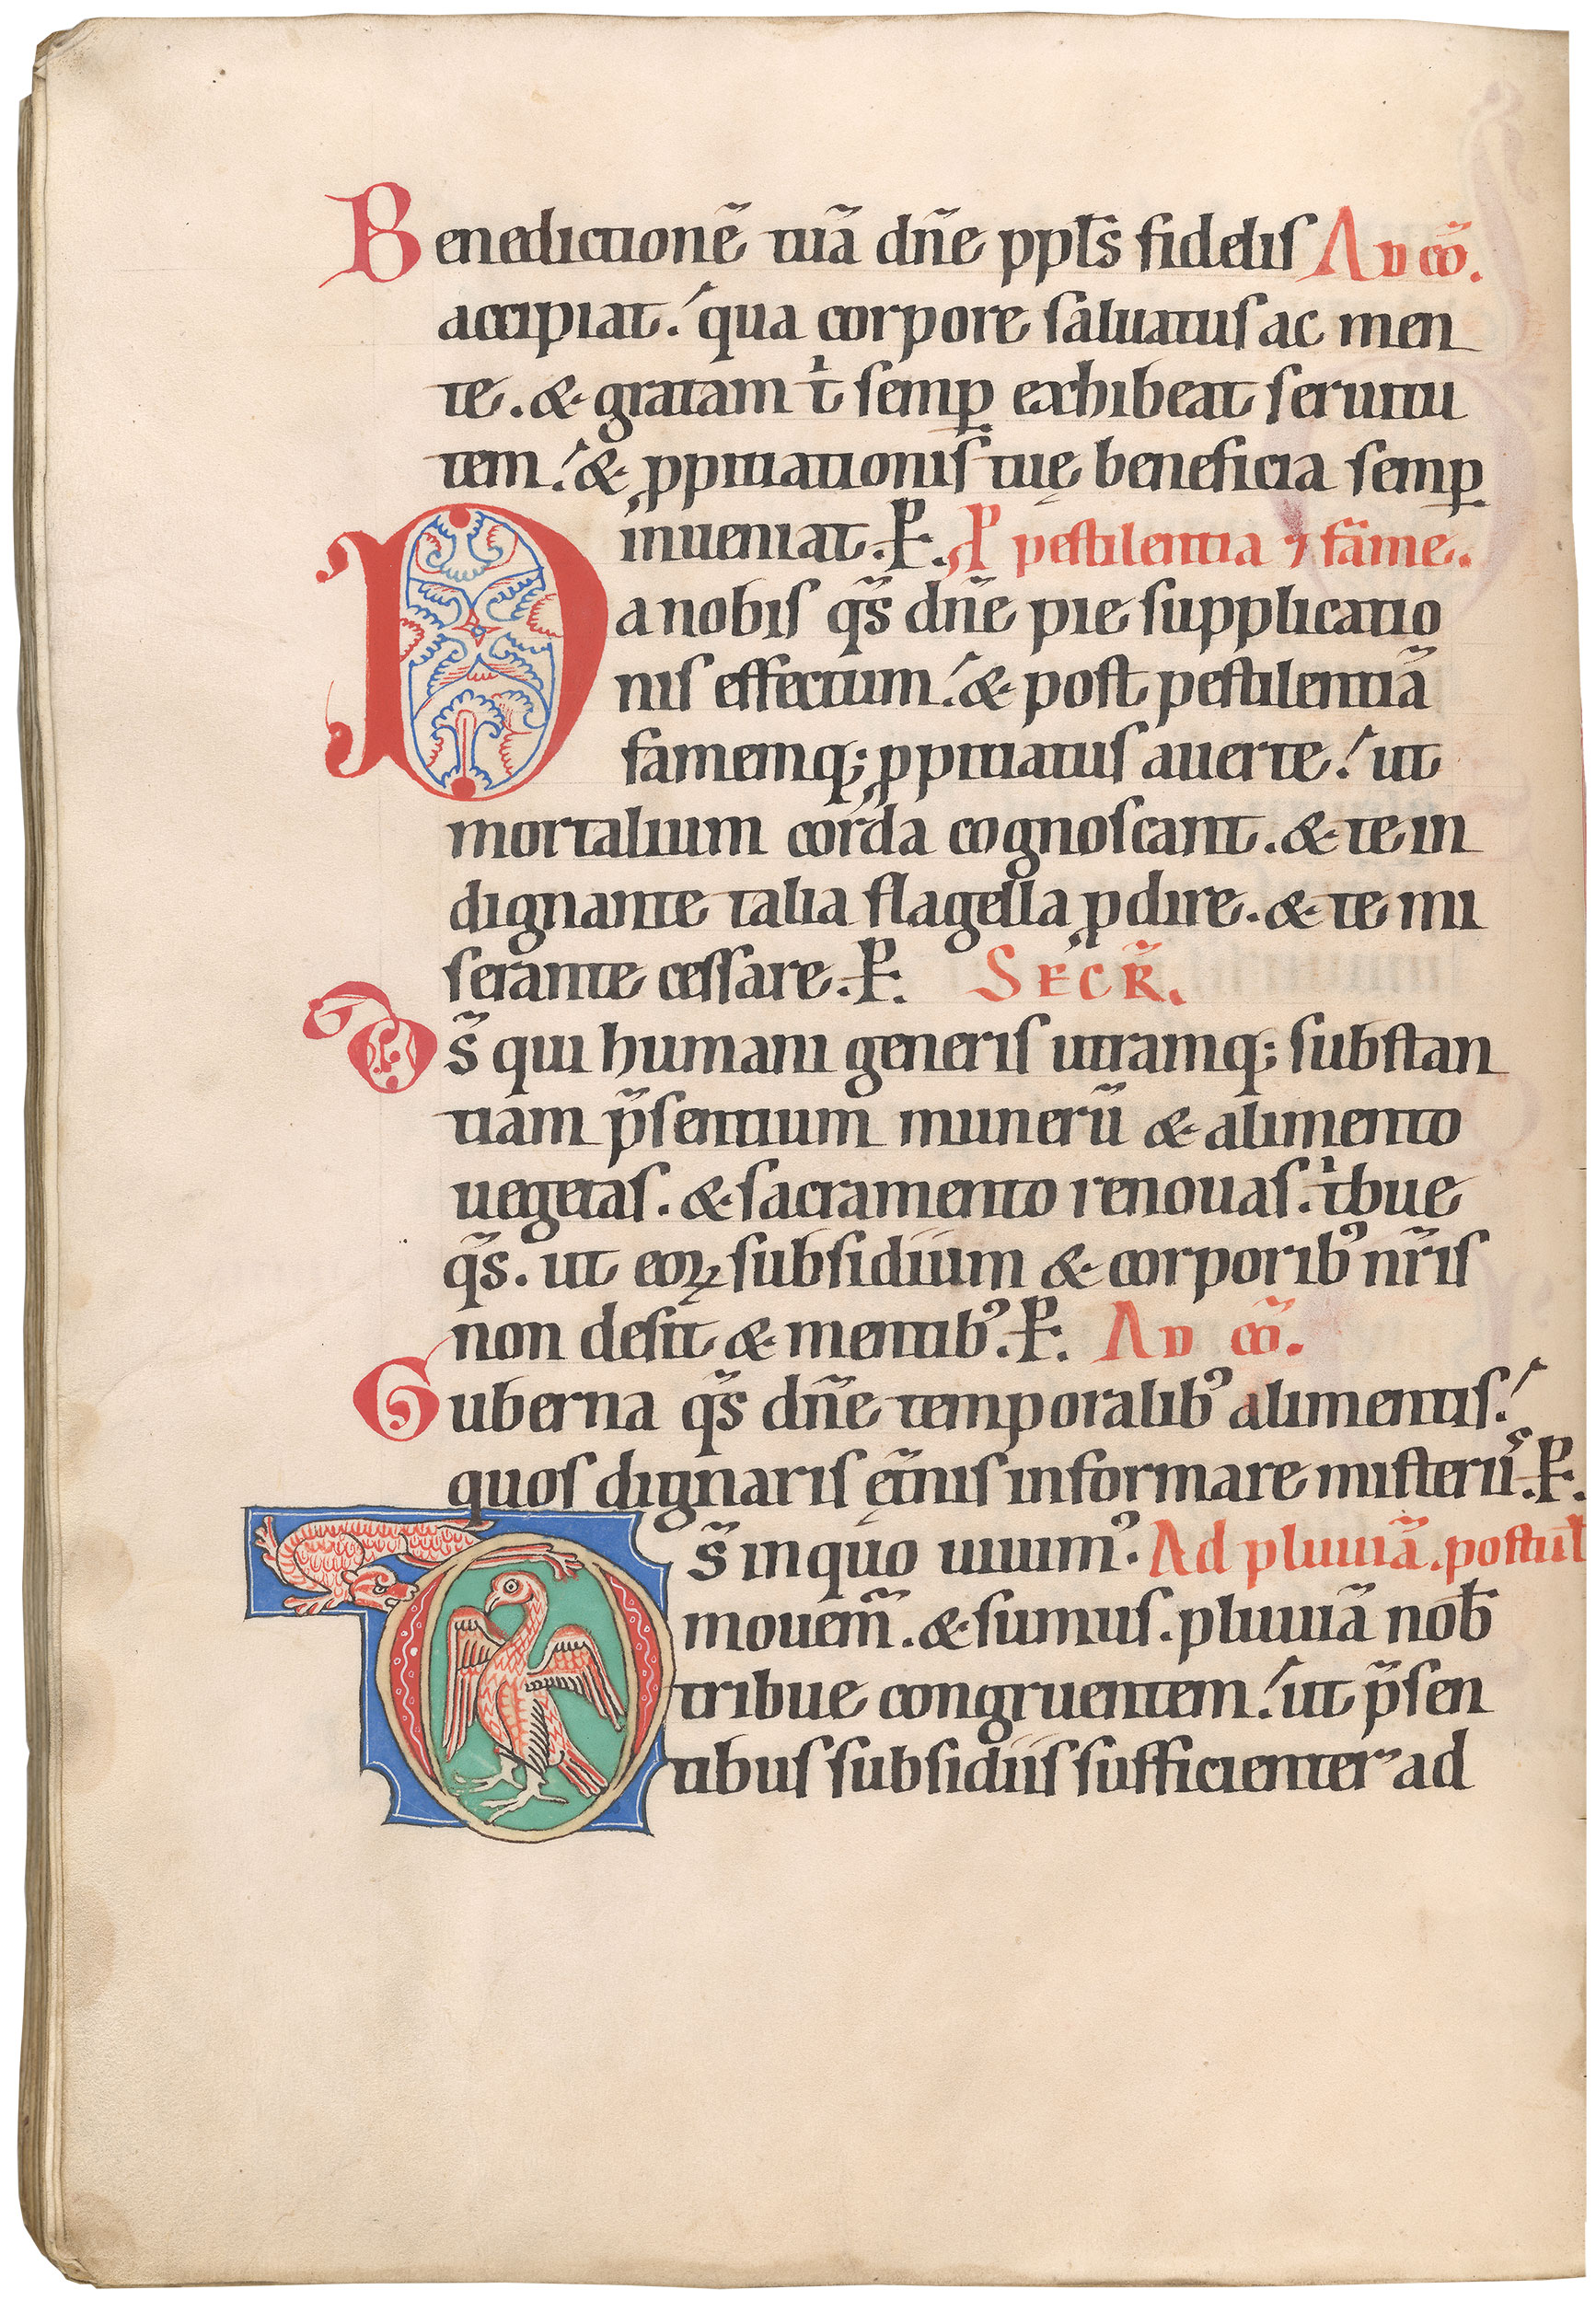 Benedictionē tuā dn̄e ppl̄s fidelis Ad cō.
accipiat. qua corpore saluatus ac men
te. & gratam t̍ semꝑ exhibeat seruitu
tem. & ꝓpitiationis tuę beneficia semꝑ
inueniat. P. P pestilentia ⁊ fame.
Da nobis qs̄ dn̄e pie supplicatio
nis effectum. & post pestilentiā
famemq; ꝓpitiatus auerte. ut
mortalium corda cognoscant. & te in
dignante talia flagella ꝓdire. & te mi
serante cessare. P. SECR̄.
Ds̄ qui humani generis utramq; substan
tiam p̄sentium munerū & alimento
uegetas. & sacramento renouas. t̍bue
qs̄. ut eoꝝ subsidium & corporibꝰ nr̄is
non desit & mentibꝰ. P. Ad cō.
Guberna qs̄ dn̄e temporalibꝰ alimentis.
quos dignaris ęt̄nis informare misteriis. P.
Ds̄ in quo uiuimꝰ. Ad pluuiā. postul̄
mouem̄. & sumus. pluuiā nob̄
tribue congruentem. ut p̄sen
tibus subsidiis sufficienter ad